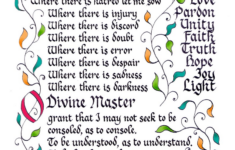 Where there is hatred let me sow Love
Where there is injury Pardon
Where there is discord Unity
Where there is doubt Faith
Where there is error Truth
Where there is despair Hope
Where there is sadness Joy
Where there is darkness Light
O Divine Master
grant that I may not seek to be
consoled, as to console.
To be understood, as to understand,